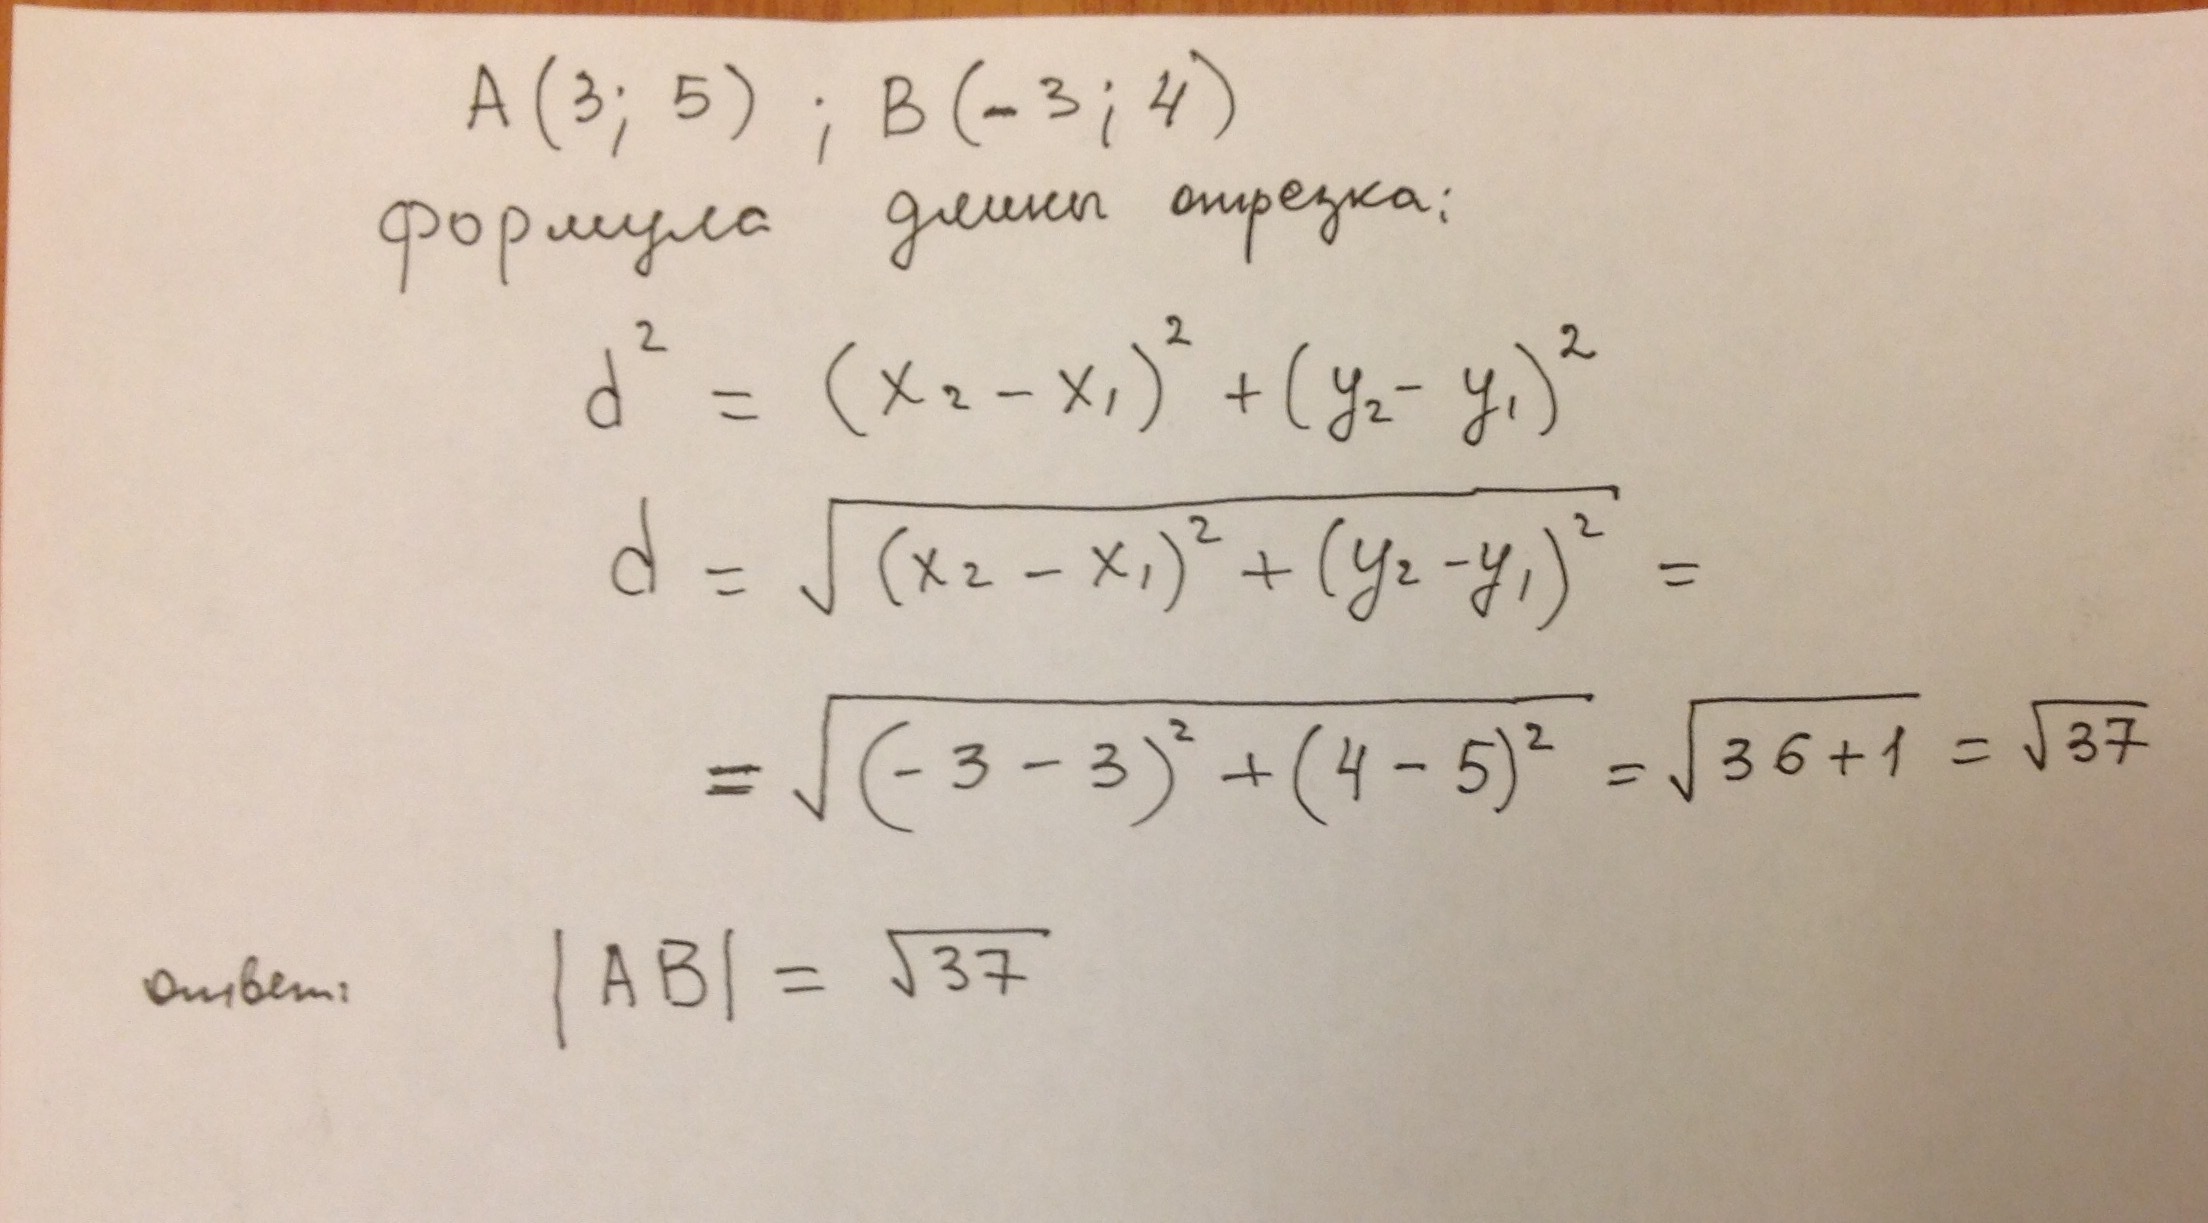 A(3; 5) ; B(-3; 4)
формула длины отрезка:
d² = (x₂ - x₁)² + (y₂ - y₁)²
d = √((x₂ - x₁)² + (y₂ - y₁)²) =
= √((-3 - 3)² + (4 - 5)²) = √(36 + 1) = √37
ответ: |AB| = √37